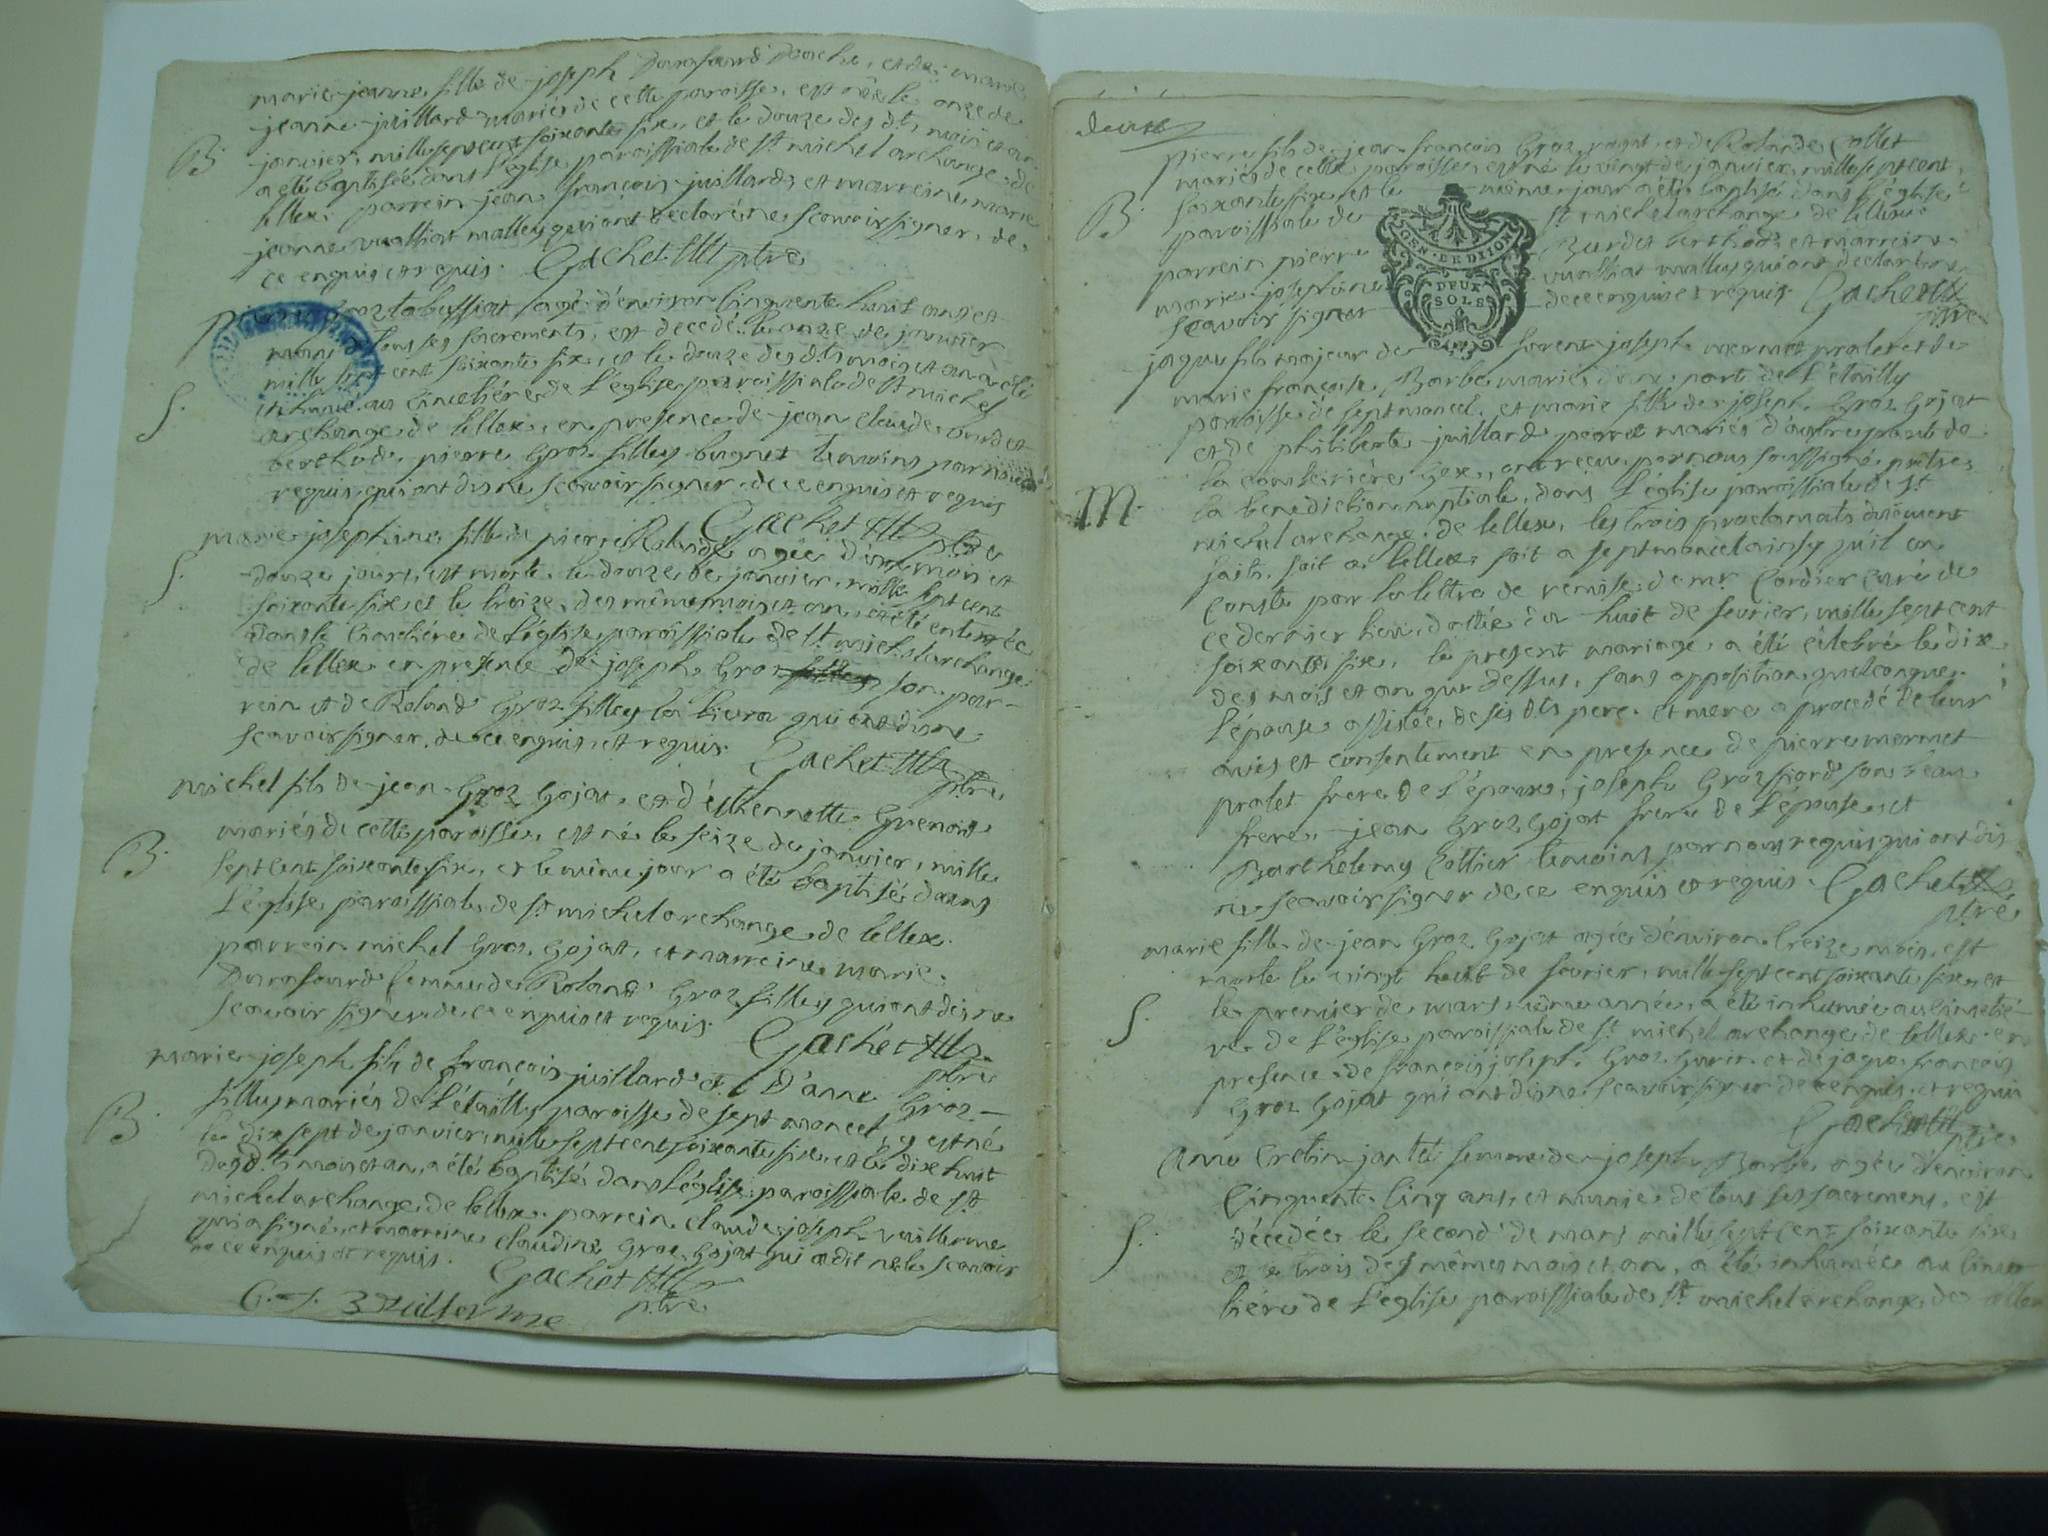 marie-jeanne fille de joseph Durafourd et de marie
jeanne juillard mariés de cette paroisse, est née le onze de
janvier mille sept cent soixante six, et le douze des dts mois et an
a été baptisée dans l'église paroissiale de st michel archange de
lellex. parrein jean françois juillard, et marreine marie
jeanne malley qui ont declaré ne scavoir signer, de
ce enquis et requis. Gachet ptre
B.
agé d'environ cinquante huit ans et
muni de tous ses sacrements, est decedé le onze de janvier
mille sept cent soixante six, et le douze des dts mois et an a été
inhumé au cimetière de l'église paroissiale de st michel
archange de lellex, en presence de jean claude burdet
berthod, pierre Groz filley bugnet temoins par nous
requis, qui ont dis ne scavoir signer de ce enquis et requis
Gachet ptre
S.
marie josephine fille de pierre agée d'un mois et
douze jours, est morte le douze de janvier mille sept cent
soixante six et le treize des même mois et an, a été enterrée
dans le cimetière de l'église paroissiale de st michel archange
de lellex en presence de joseph Groz son par-
rein et de Roland Groz filley qui ont dis ne
scavoir signer, de ce enquis et requis. Gachet ptre
S.
michel fils de jean Groz Gojat, et d'ethiennette Grenard
mariés de cette paroisse, est né le seize de janvier, mille
sept cent soixante six, et le même jour a été baptisé dans
l'église paroissiale de st michel archange de lellex.
parrein michel Groz Gojat, et marreine marie
Durafourd femme de Roland Groz filley qui ont dis ne
scavoir signer de ce enquis et requis. Gachet ptre
B.
marie joseph fils de françois juillard et d'anne Groz
filley mariés de l'étailly paroisse de septmoncel, y est né
le dix sept de janvier mille sept cent soixante six, et le dix huit
des dts mois et an, a été baptisé dans l'église paroissiale de st
michel archange de lellex. parrein claude joseph vuillerme
qui a signé, et marreine claudine Groz Gojat qui a dit ne le scavoir
de ce enquis et requis. Gachet ptre
B.
C. J. Vuillerme
deux
pierre fils de jean françois Groz et de Rolande Collet
mariés de cette paroisse, est né le vingt de janvier, mille sept cent
soixante six, et le même jour a été baptisé dans l'église
paroissiale de st michel archange de lellex
parrein pierre Burdet berthod, et marreine
marie josephine malley qui ont declaré ne
scavoir signer de ce enquis et requis. Gachet ptre
B.
DEUX
SOLS
jaque fils majeur de joseph mermet pralet et de
marie françoise Barbe mariés d'une part de l'étailly
paroisse de septmoncel, et marie fille de joseph Groz Gojat
et de philiberte juillard perret mariés d'autre part de
, ont reçu par nous soussigné prêtre
la benediction nuptiale, dans l'église paroissiale de st
michel archange de lellex, les trois proclamats duëment
faits, soit a lellex soit a septmoncel ainsy qu'il en
conste par la lettre de remise de mr Cordier curé de
ce dernier lieu, dattée du huit de fevrier, mille sept cent
soixante six, le present mariage, a été célébré le dix
des mois et an que dessus, sans opposition quelconque.
l'épouse assistée de ses dts pere et mere a procedé de leur
avis et consentement en presence de pierre mermet
pralet frere de l'époux, joseph Groz son beau
frere, jean Groz Gojat frere de l'épouse, et
Barthelemy Collier temoins par nous requis qui ont dis
ne scavoir signer de ce enquis et requis. Gachet
ptre
M.
marie fille de jean Groz Gojat agée d'environ treize mois, est
morte le vingt huit de fevrier, mille sept cent soixante six, et
le premier de mars même année, a été inhumée au cimetiè-
re de l'église paroissiale de st michel archange de lellex en
presence de françois joseph Groz et de jaque françois
Groz Gojat qui ont dis ne scavoir signer de ce enquis et requis
Gachet ptre
S.
Anne Cretin femme de joseph Barbe agée d'environ
cinquante cinq ans, et munie de tous ses sacremens, est
décedée le second de mars mille sept cent soixante six
et le trois des mêmes mois et an, a été inhumée au cime
tière de l'eglise paroissiale de st michel archange de lellex
S.